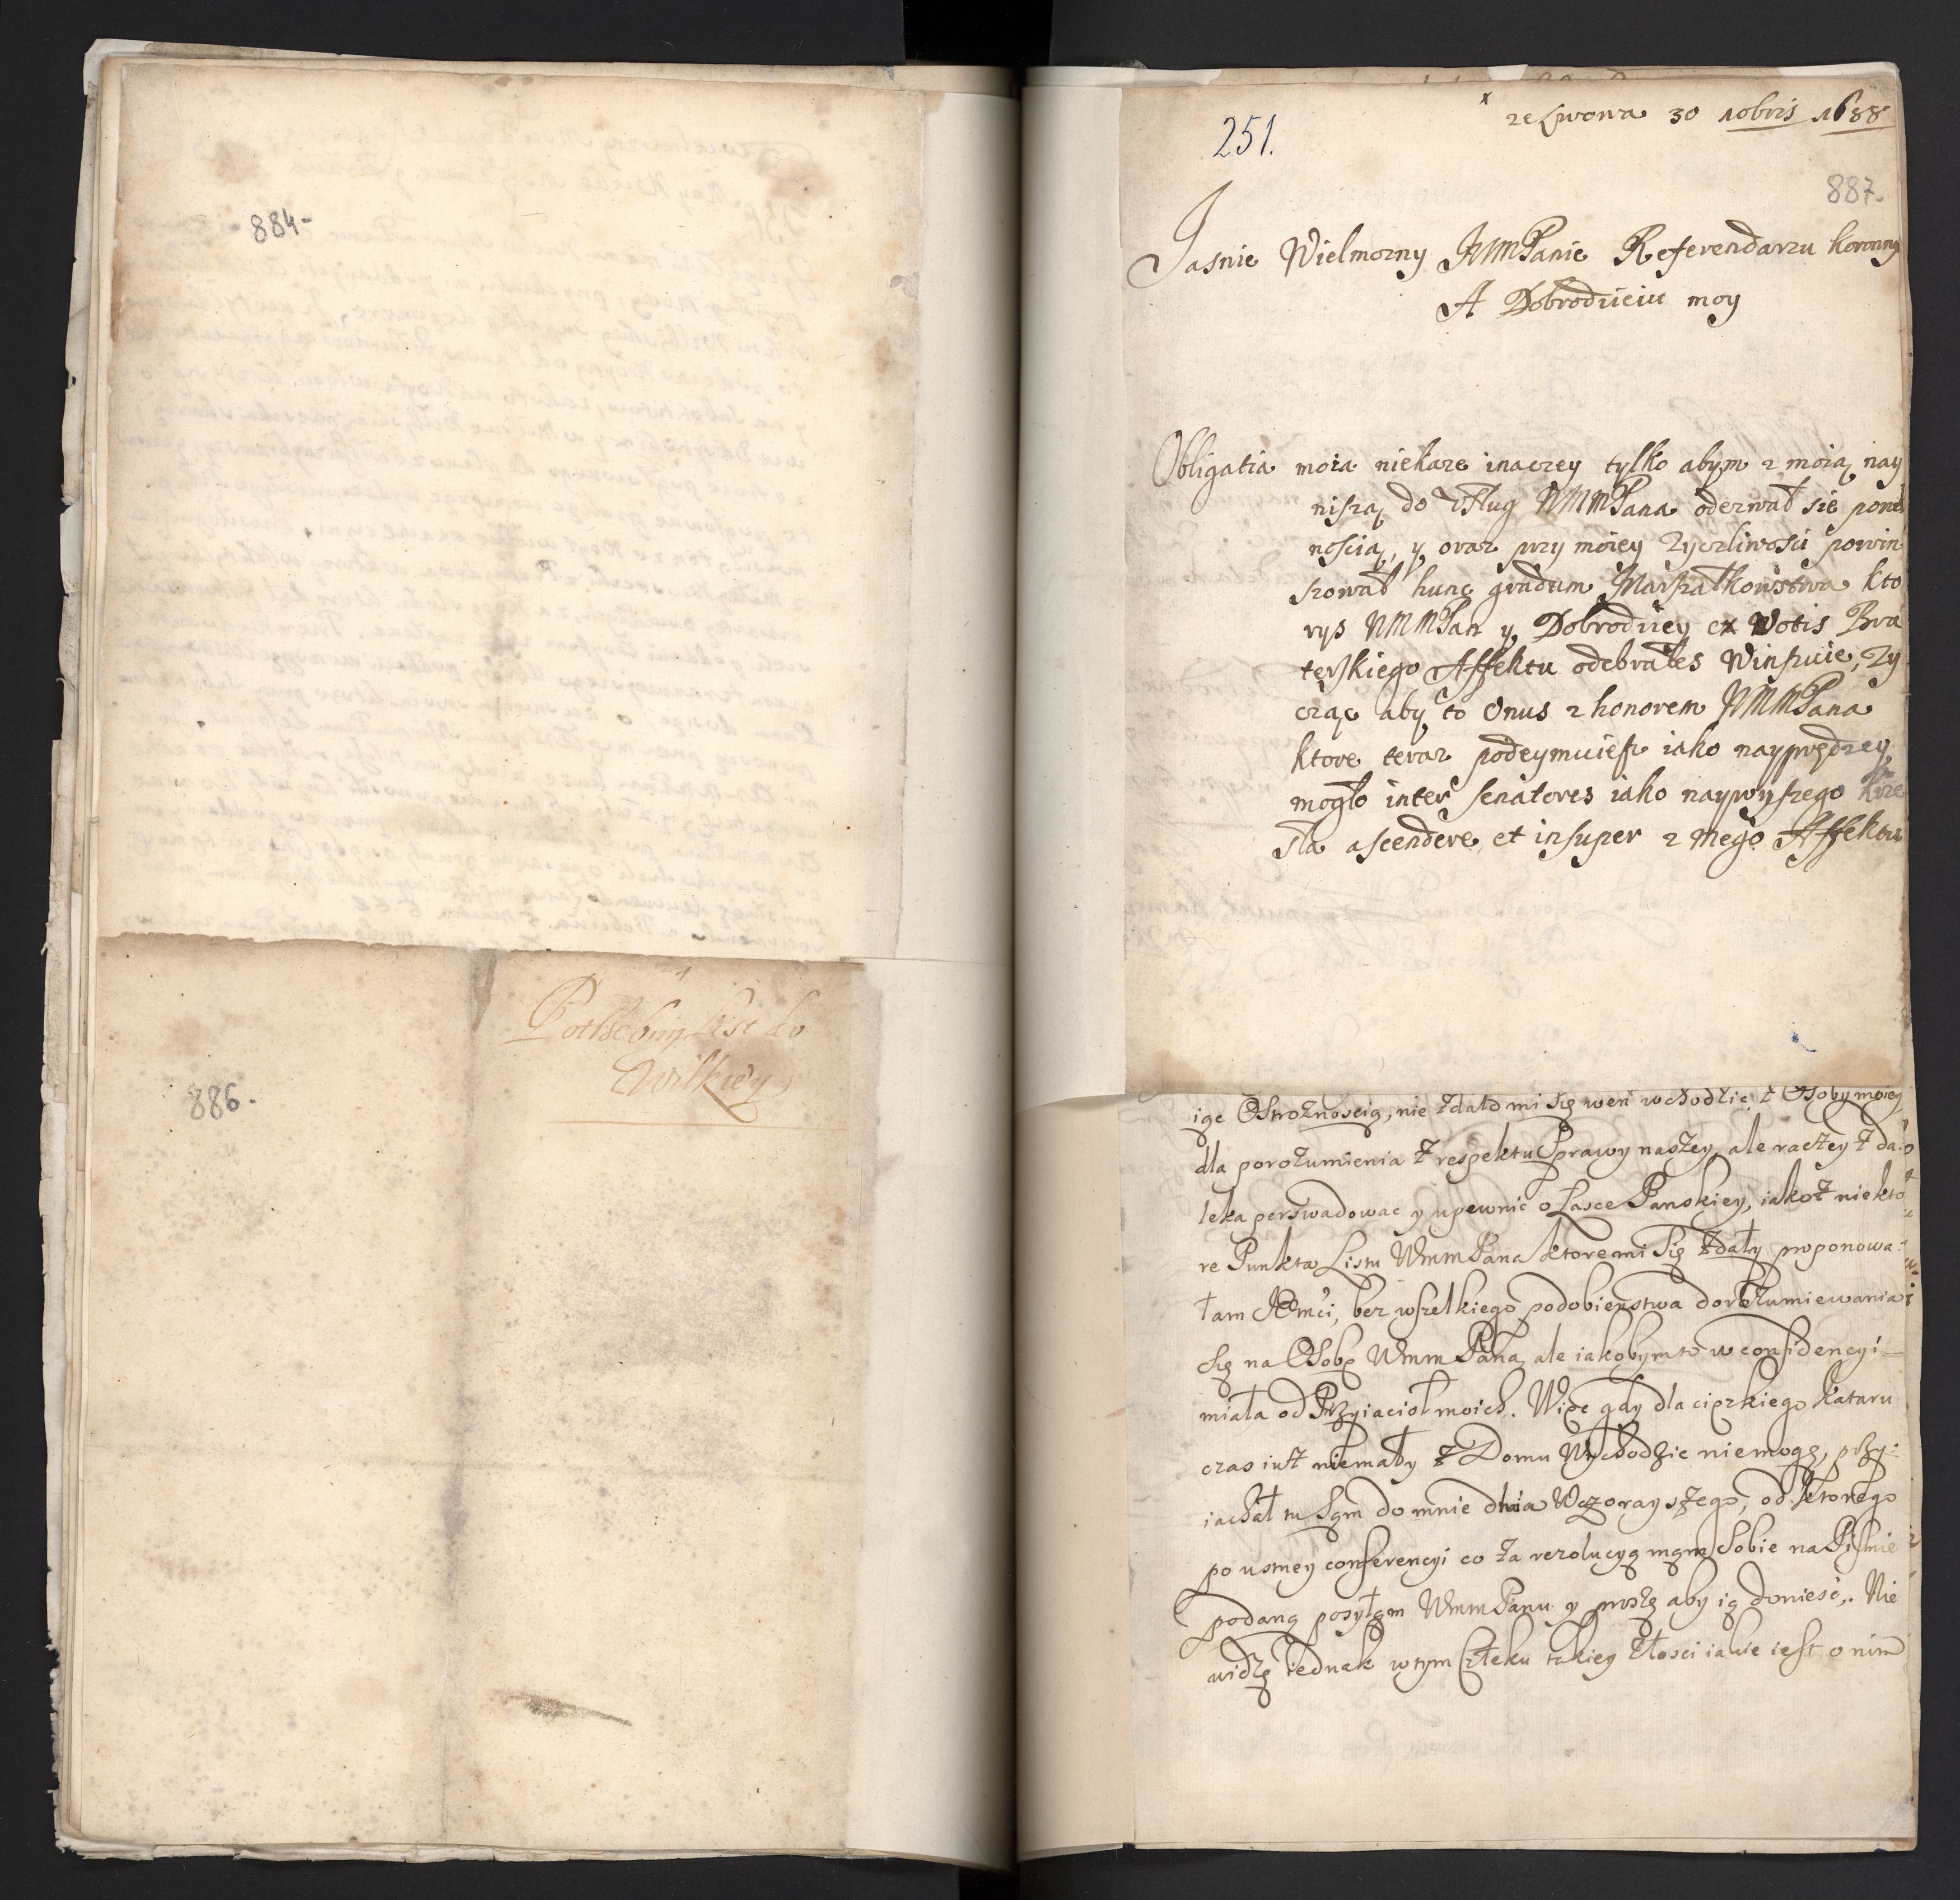 884-
Potrsebny list do
Wilkiey
886.
251.
ze Lwowa 30 10bris 1688
887.
Jasnie Wielmozny JMMPanie Referendarzu koronny
A Dobrodzieiu moy
Obligatia moia niekaze inaczey tylko abym z moią nay
niszą do usług WMMPana oderwał sie powi
noscią, y oraz przy moiey Zyczliwosci powin
szował hunc gradum Marszałkowstwa kto
rys WMMPan y Dobrodziey ex Votis Bra
terskiego Affektu odebrałes Winszuie, Zy
cząc aby to Onus z honorem WMMPana
ktore teraz podeymuiesz iako nayprędzey
mogło inter senatores iako naywyszego krze
sła ascendere et insuper z mego Affektu
iąc Ostroznoscią, nie zdało mi się weń wchodzic z Osoby moiey
dla porozumienia z respektu Sprawy naszey, ale raczey z da:
leka perswadowac y upewnic o Łasce Panskiey, iakoz niekto
re Punkta Listu WmmPana ktore mi się zdały proponowa:
łam JEmci, bez wszelkiego podobienstwa dorozumiewania
się na Osobę WmmPana, ale iakobym to w confidencyi
miała od Przyiacioł moich. Więc gdy dla cięzkiego Kataru
czas iusz niemały z Domu Wychodzic niemogę, przy:
iachał tu Sąm do mnie dnia Wczorayszego, od ktorego
po ustney conferencyi co za rezolucyą mąm Sobie na Pismie
podaną posyłąm WmmPanu y proszę aby ią doniesć. Nie
widzę iednak w tym Człeku takiey złosci iakie iest o nim